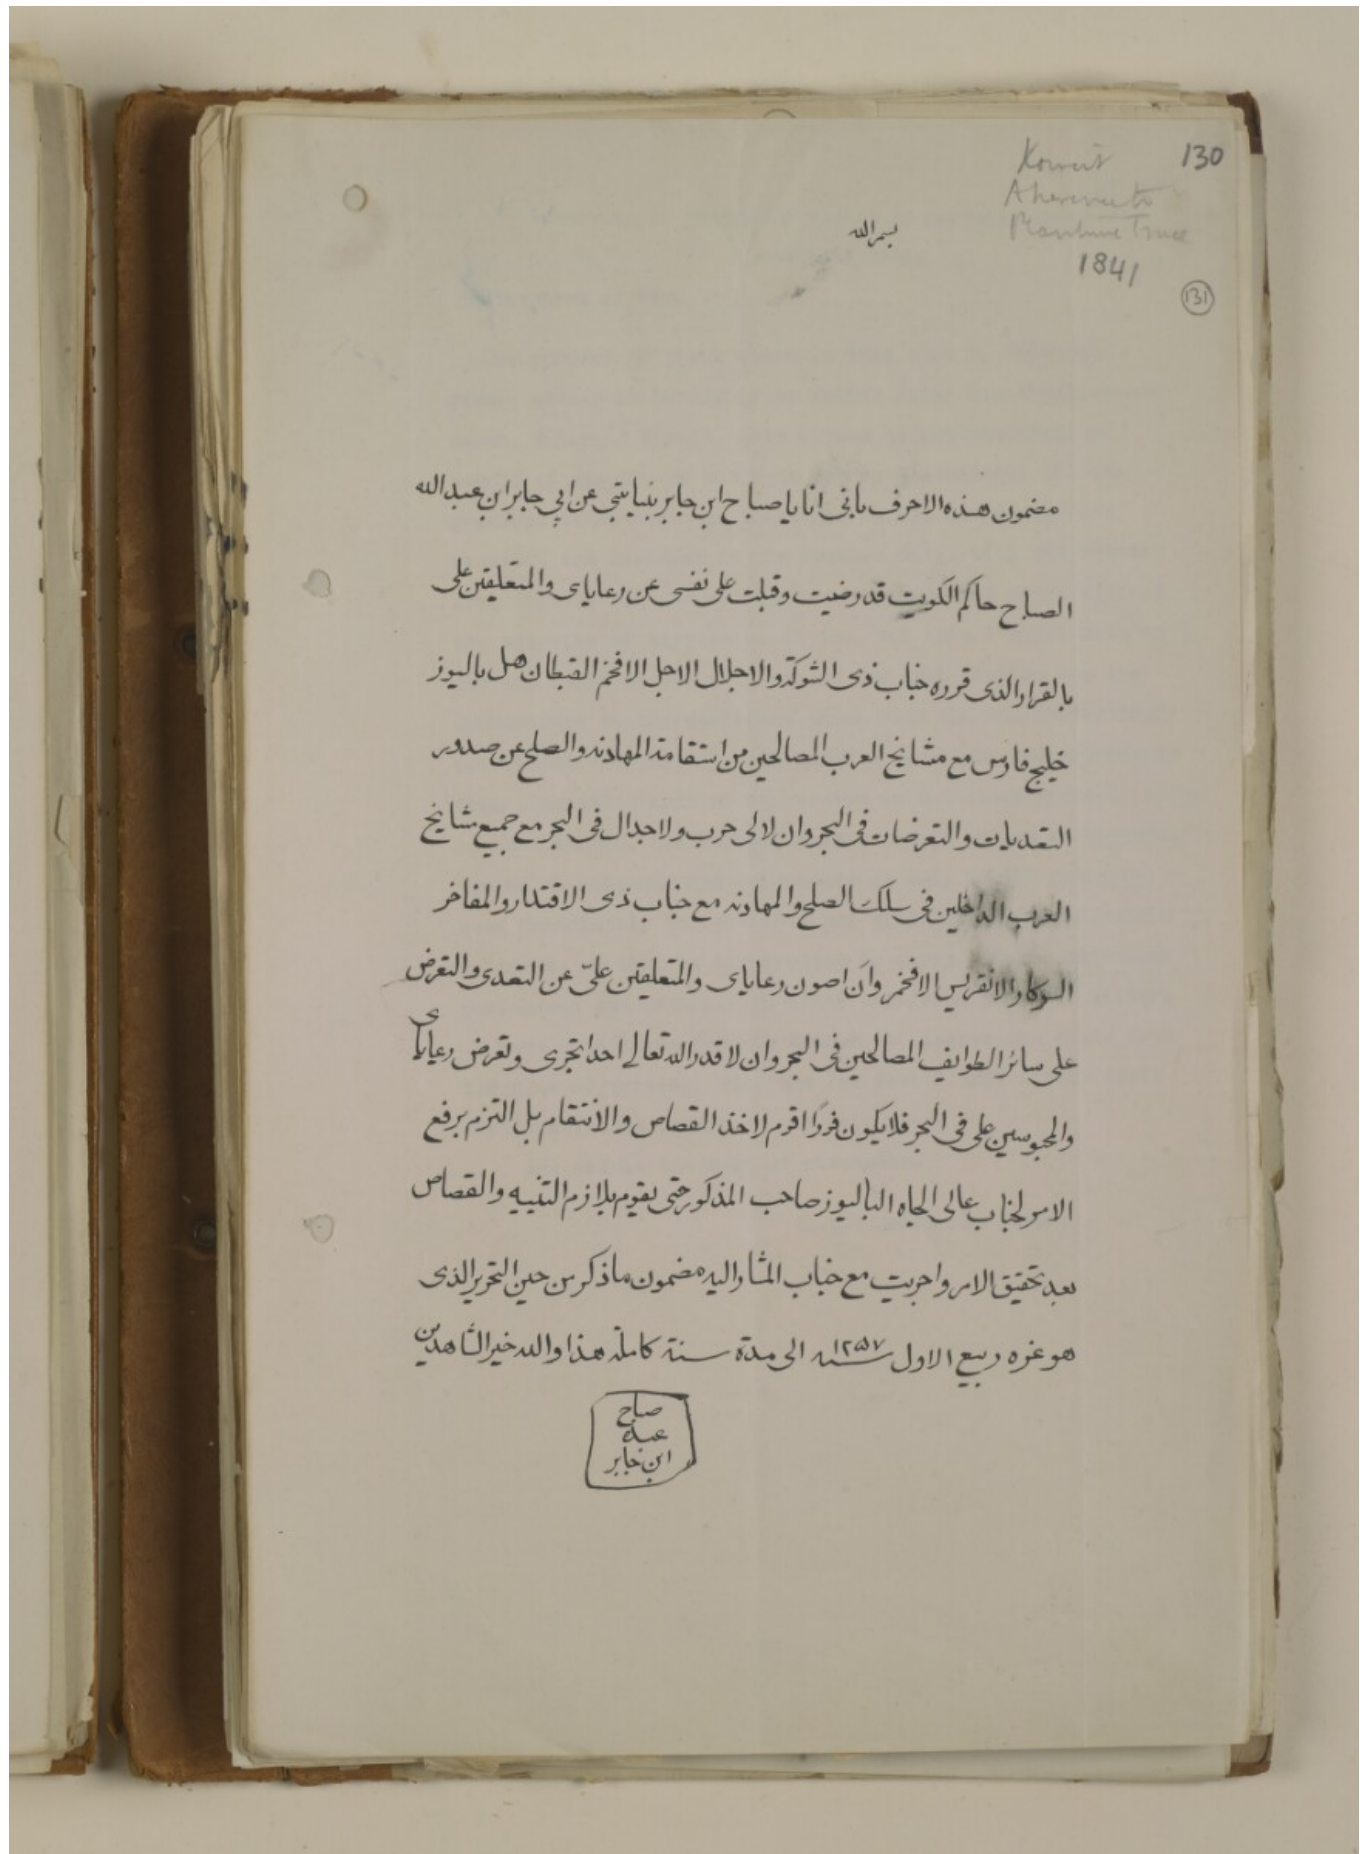 130
Koweit
Adherence to
Maritime Truce
1841
131
بسم الله
مضمون هذه الاحرف بانى انا يا صباح ابن جابر بنيابتي عن ابي جابر ابن عبد الله
الصباح حاكم الكويت قد رضيت وقبلت على نفسى عن رعاياى والمتعلقين على
بالقرار الذى قرره جناب ذى الشوكة والاجلال الاجل الافخم القبطان هنل باليوز
خليج فارس مع مشايخ العرب المصالحين من استقامة المهادنه والصلح عن صدور
التعديات والتعرضات فى البحر وان لا لى حرب ولا جدال فى البحر مع جميع مشايخ
العرب الداخلين فى سلك الصلح والمهادنه مع جناب ذى الاقتدار والمفاخر
السركار الانقريس الافخم وان اصون رعاياى والمتعلقين علىّ عن التعدى والتعرض
على سائر الطوايف المصالحين فى البحر وان لا قدر الله تعالى احد تجرى وتعرض رعاياى
والمحبوسين على فى البحر فلا يكون فورًا اقوم لاخذ القصاص والانتقام بل التزم برفع
الامر لجناب عالى الجاه الباليوز صاحب المذكور حتى يقوم بلازم التنبيه والقصاص
بعد تحقيق الامر واجريت مع جناب المشار اليه مضمون ما ذكر من حين التحرير الذى
هو غره ربيع الاول سنه ١٢٥٧ الى مدة سنة كاملة هذا والله خير الشاهدين
صباح
عبده
ابن جابر